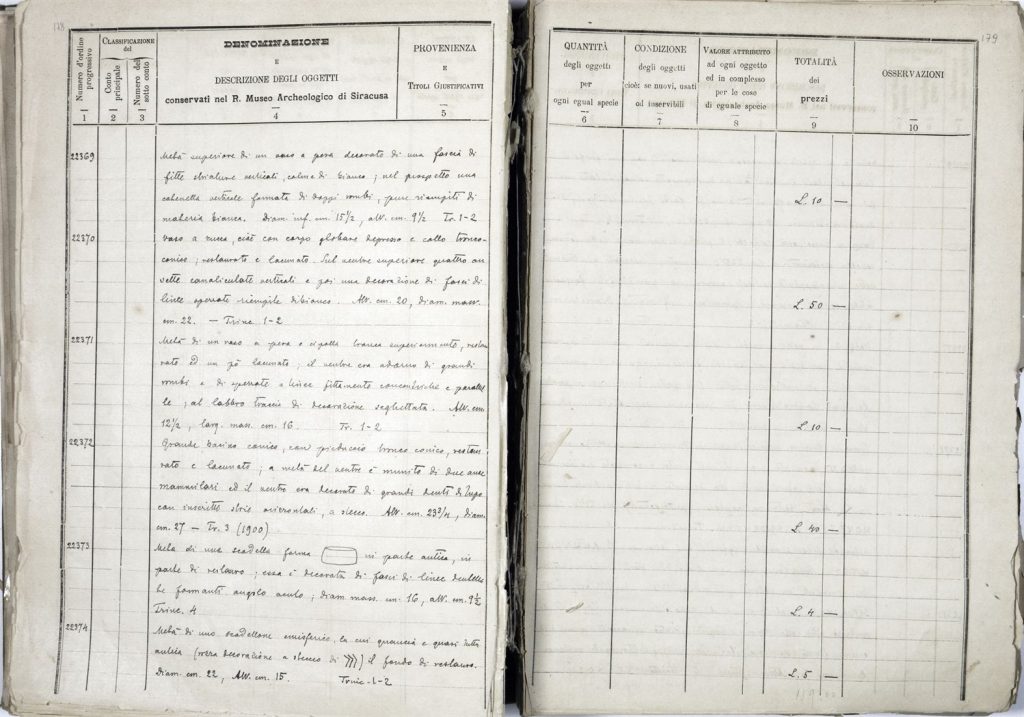 178
Numero d'ordine progressivo
CLASSIFICAZIONE del
Conto principale
Numero del sotto conto
DENOMINAZIONE
E
DESCRIZIONE DEGLI OGGETTI
conservati nel R. Museo Archeologico di Siracusa
PROVENIENZA
E
TITOLI GIUSTIFICATIVI
1 2 3 4 5
22369 Metà superiore di un vaso a pera decorato di una fascia di
fitte striature verticali, colme di bianco; nel prospetto una
catenella verticale formata di doppi rombi, pure riempiti di
materia bianca. Diam. inf. cm. 15½, alt. cm. 9½ Tr. 1-2
22370 Vaso a zucca, cioè con corpo globare depresso e collo tronco-
conico; restaurato e lacunato. Sul ventre superiore quattro an
sette canaliculate verticali e poi una decorazione di fasci di
linee spezzate riempite di bianco. Alt. cm. 20, diam. mass.
cm. 22. — Trinc. 1-2
22371 Metà di un vaso a pera o cipolla tronca superiormente, restau
rato ed un pò lacunato; il ventre era adorno di grandi
rombi e di spezzate a linee fittamente concentriche e paralle
le; al labbro traccie di decorazione seghettata. Alt. cm.
12½, larg. mass. cm. 16. Tr. 1-2
22372 Grande bacino conico, con pieduccio tronco conico, restau
rato e lacunato; a metà del ventre è munito di due anse
mammilari ed il ventre era decorato di grandi denti di lupo
con inscritte strie orizzontali, a stecco. Alt. cm. 23¾, diam.
cm. 27 — Tr. 3 (1900)
22373 Metà di una scodella forma in parte antica, in
parte di restauro; essa è decorata di fasci di linee dentella
te formanti angolo acuto; diam. mass. cm. 16, alt. cm. 9½
Trinc. 4
22374 Metà di uno scodellone emisferico, la cui grancia è quasi tutta
antica (rozza decorazione a stecco di ⟩⟩⟩) il fondo di restauro.
Diam. cm. 22, Alt. cm. 15. Trinc. 1-2
179
QUANTITÀ
degli oggetti
per
ogni egual specie
CONDIZIONE
degli oggetti
cioè: se nuovi, usati
od inservibili
VALORE ATTRIBUITO
ad ogni oggetto
ed in complesso
per le cose
di eguale specie
TOTALITÀ
dei
prezzi
OSSERVAZIONI
6 7 8 9 10
L. 10 —
L. 50 —
L. 10 —
L. 40 —
L. 4 —
L. 5 —